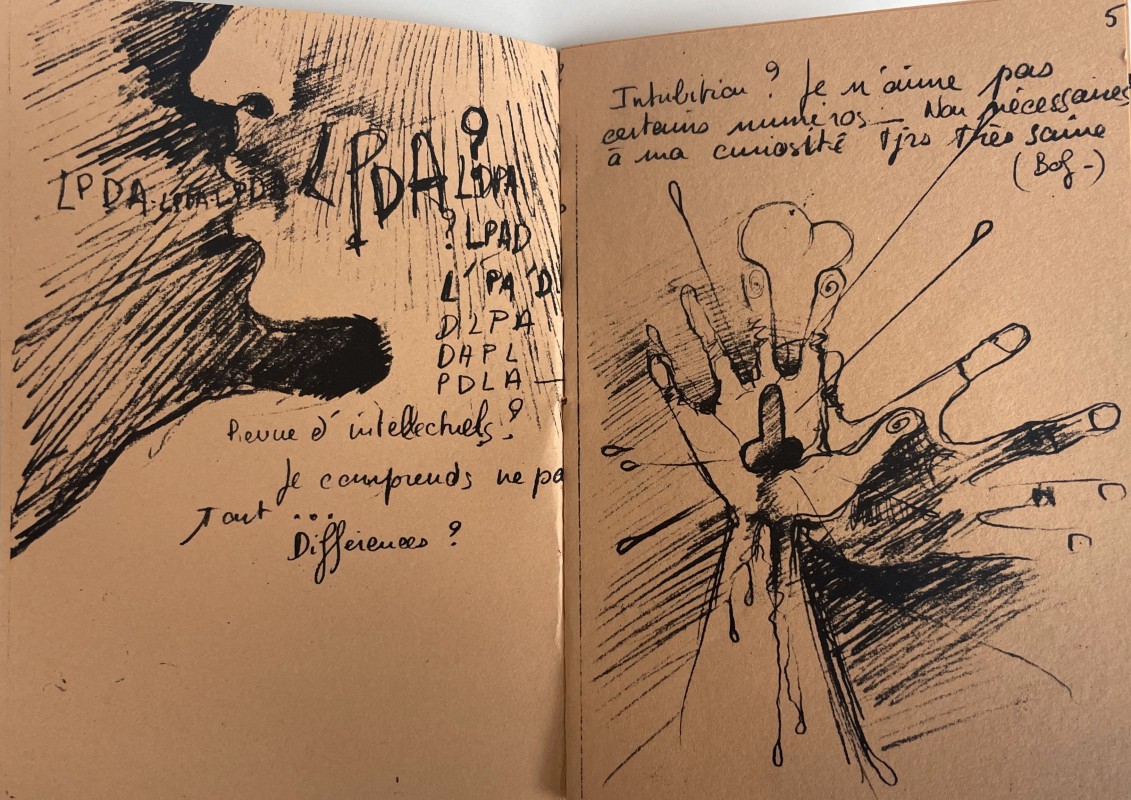 LPDA LPDA LPDA LPDA ?
LDPA
? LPAD
L' PA 'D
DLPA
DAPL
PDLA —
Revue d' intellectuels ?
Je comprends ne pa
Tout ...
Différences ?
5
Intuibition ? Je n'aime pas
certains numéros — Non nécessaires
à ma curiosité tjrs très saine
(Bof -)